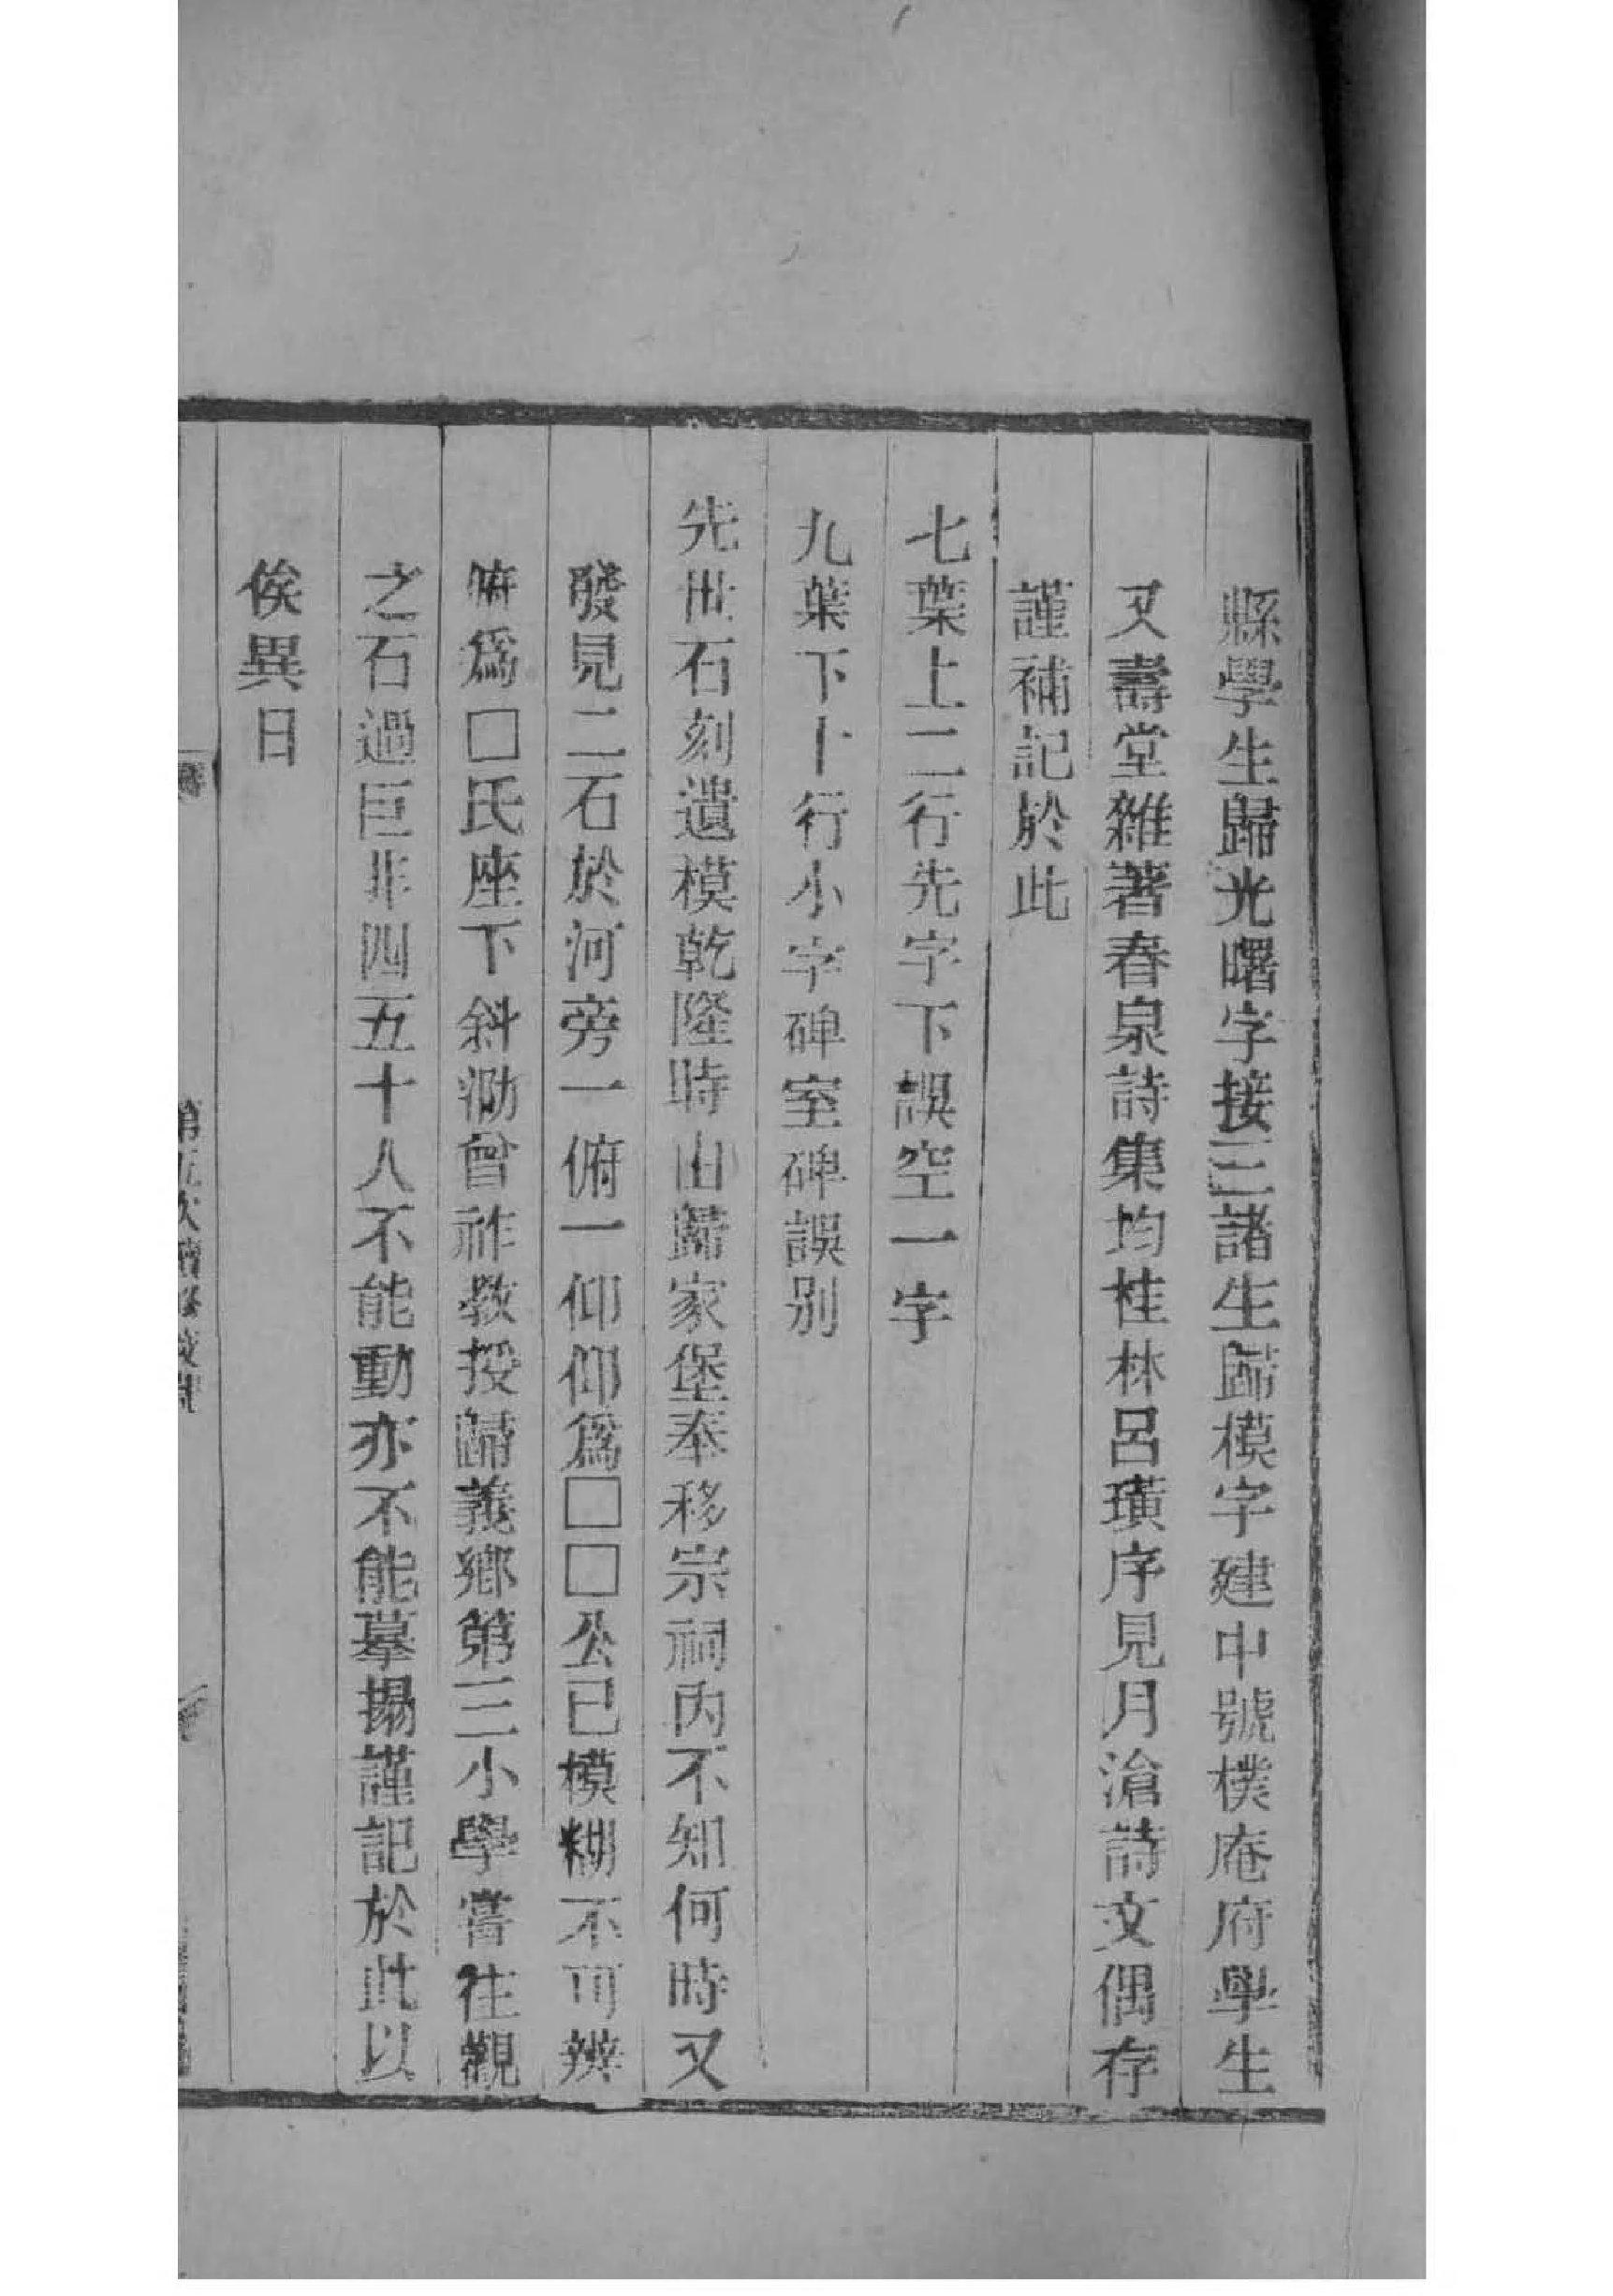 縣學生歸光曙字接三諸生歸模字建中號樸庵府學生
又壽堂雜著春泉詩集均桂林呂璜序見月滄詩文偶存
謹補記於此
七葉上二行先字下誤空一字
九葉下十行小字碑室碑誤別
先世石刻遺模乾隆時由歸家堡奉移宗祠內不知何時又
發見二石於河旁一俯一仰仰爲□□公已模糊不可辨
俯爲□氏座下斜泐曾祚教授歸義鄉第三小學嘗往觀
之石過巨非四五十人不能動亦不能摹搨謹記於此以
俟異日